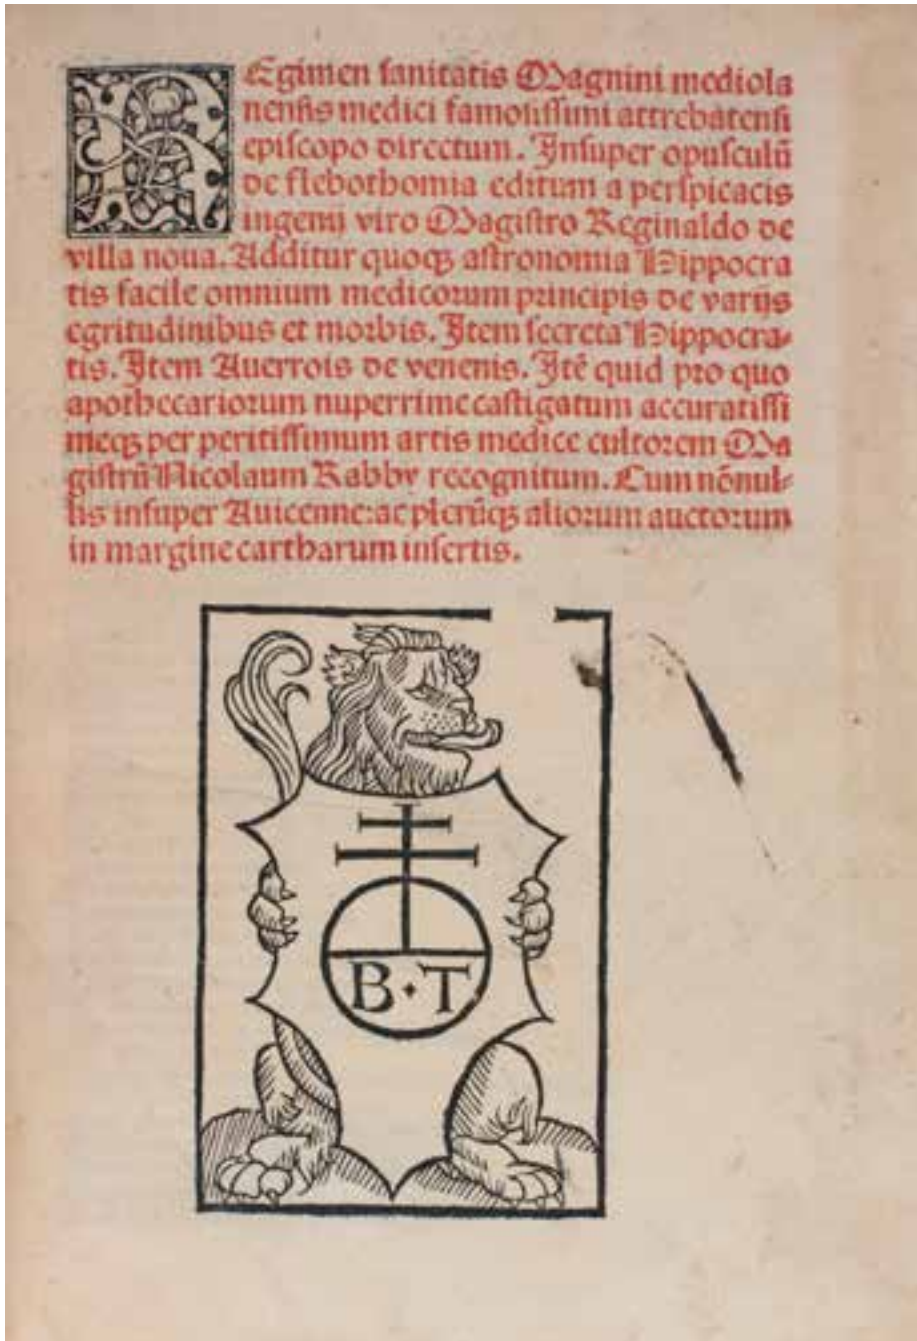 REgimen sanitatis Magnini mediola
nensis medici famosissimi attrebatensi
episcopo directum. Insuper opusculũ
de flebothomia editum a perspicacis
ingenij viro Magistro Reginaldo de
villa noua. Additur quoqꝫ astronomia Hippocra
tis facile omnium medicorum principis de varijs
egritudinibus et morbis. Item secreta Hippocra-
tis. Item Auerrois de venenis. Itẽ quid pro quo
apothecariorum nuperrime castigatum accuratissi
meqꝫ per peritissimum artis medice cultorem Ma
gistrũ Nicolaum Rabby recognitum. Cum nõnul-
lis insuper Auicenne: ac plerũqꝫ aliorum auctorum
in margine cartharum insertis.
B·T